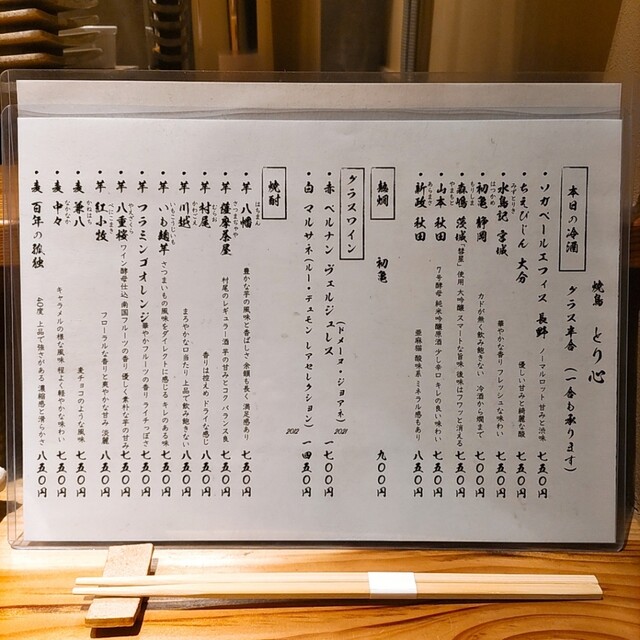 焼鳥 とり心
本日の冷酒 グラス半合 (一合も承ります)
・ソガペールエフィス 長野 ノーマルロット 甘みと渋味 七五〇円
・ちえびじん 大分 優しい甘みと綺麗な酸 七五〇円
・水鳥記 宮城 みずとりき 華やかな香り フレッシュな味わい 七五〇円
・初亀 静岡 はつかめ カドが無く飲み飽きない 冷酒から燗まで 七〇〇円
・森嶋 茨城 もりしま 「彗星」使用 大吟醸 スマートな旨味 後味はフワッと消える 七五〇円
・山本 秋田 やまもと 7号酵母 純米吟醸原酒 少し辛口 キレの良い味わい 七五〇円
・新政 秋田 あらまさ 亜麻猫 酸味系 ミネラル感もあり 八五〇円
熱燗 初亀 九〇〇円
グラスワイン
・赤 ペルナン ヴェルジュレス (ドメーヌ・ジョアネ) 2021 一七〇〇円
・白 マルサネ (ルー・デュモン レアセレクション) 2012 一四五〇円
焼酎
・芋 八幡 はちまん 豊かな芋の風味と香ばしさ 余韻も長く 満足感あり 七五〇円
・芋 薩摩茶屋 さつまちゃや 村尾のレギュラー酒 芋の甘みとコク バランス良 七五〇円
・芋 村尾 むらお 香りは控えめ ドライな感じ 八五〇円
・芋 川越 かわごえ まろやかな口当たり 上品で飲み飽きない 七五〇円
・芋 いも麹芋 いもこうじいも さつまいもの風味をダイレクトに感じる キレのある味 七五〇円
・芋 フラミンゴオレンジ 華やかフルーツの香り ライチっぽさ 七五〇円
・芋 八重桜 やえざくら ワイン酵母仕込 南国フルーツの香り 優しく素朴な芋の甘み 七五〇円
・芋 紅小牧 べにこまき フローラルな香りと爽やかな甘み 淡麗 八五〇円
・麦 兼八 かねはち 麦チョコのような風味 七五〇円
・麦 中々 なかなか キャラメルの様な風味 程よく軽やかな味わい 七五〇円
・麦 百年の孤独 40度 上品で強さがある 濃縮感と滑らかさ 八五〇円